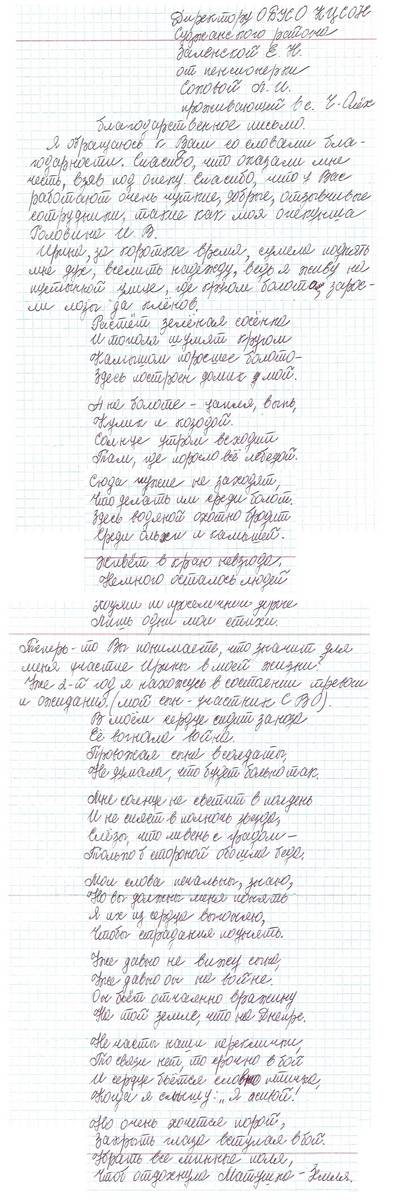 Директору ОБУСО КЦСОН
Суджанского района
Заленской Е. Н.
от пенсионерки
Соковой Л. И.
проживающей в с. Ч-Олёх
Благодарственное письмо.
Я обращаюсь к Вам со словами бла-
годарности. Спасибо, что оказали мне
честь, взяв под опеку. Спасибо, что у Вас
работают очень чуткие, добрые, отзывчивые
сотрудники, такие как моя опекунша
Головина И. В.
Ирина, за короткое время, сумела поднять
мне дух, вселить надежду, ведь я живу на
пустынной улице, где кругом болота, зарос-
ли лозы да клёнов.
Растёт зелёная сосёнка
И тополя шумят кругом
Камышом поросшее болото-
Здесь построен домик мой.
А на болоте - цапля, выпь,
Кулик и козодой.
Солнце утром всходит
Там, где поросло всё лебедой.
Сюда чужие не заходят,
Что делать им среди болот.
Здесь водяной охотно бродит
Среди ольхи и камышей.
Живёт в краю невзгода,
Немного осталось людей
Лишь одни мои стихи.
Теперь-то Вы понимаете, что значит для
меня участие Ирины в моей жизни?
Уже 2-й год я нахожусь в состоянии тревоги
и ожидания. (мой сын - участник СВО).
В моём сердце сидит заноза
Её вогнала война.
Провожая сына в солдаты,
Не думала, что будет больно так.
Мне солнце не светит в полдень
И не сияет в полночь звезда,
Слёзы, что ливень с градом-
Только б стороной обошла беда.
Мои слова печальны, знаю,
Но вы должны меня понять
Я их из сердца выгоняю,
Чтобы страдания унять.
Уже давно не вижу сына,
Уже давно он на войне.
Он бьёт отчаянно вражину
На той земле, что на Днепре.
Не часты наши переклички,
То связи нет, то срочно в бой
И сердце бьётся словно птичка,
Когда я слышу: „Я живой!
Но очень хочется порой,
Закрыть глаза вступая в бой.
Убрать все минные поля,
Чтоб отдохнула Матушка-Земля.